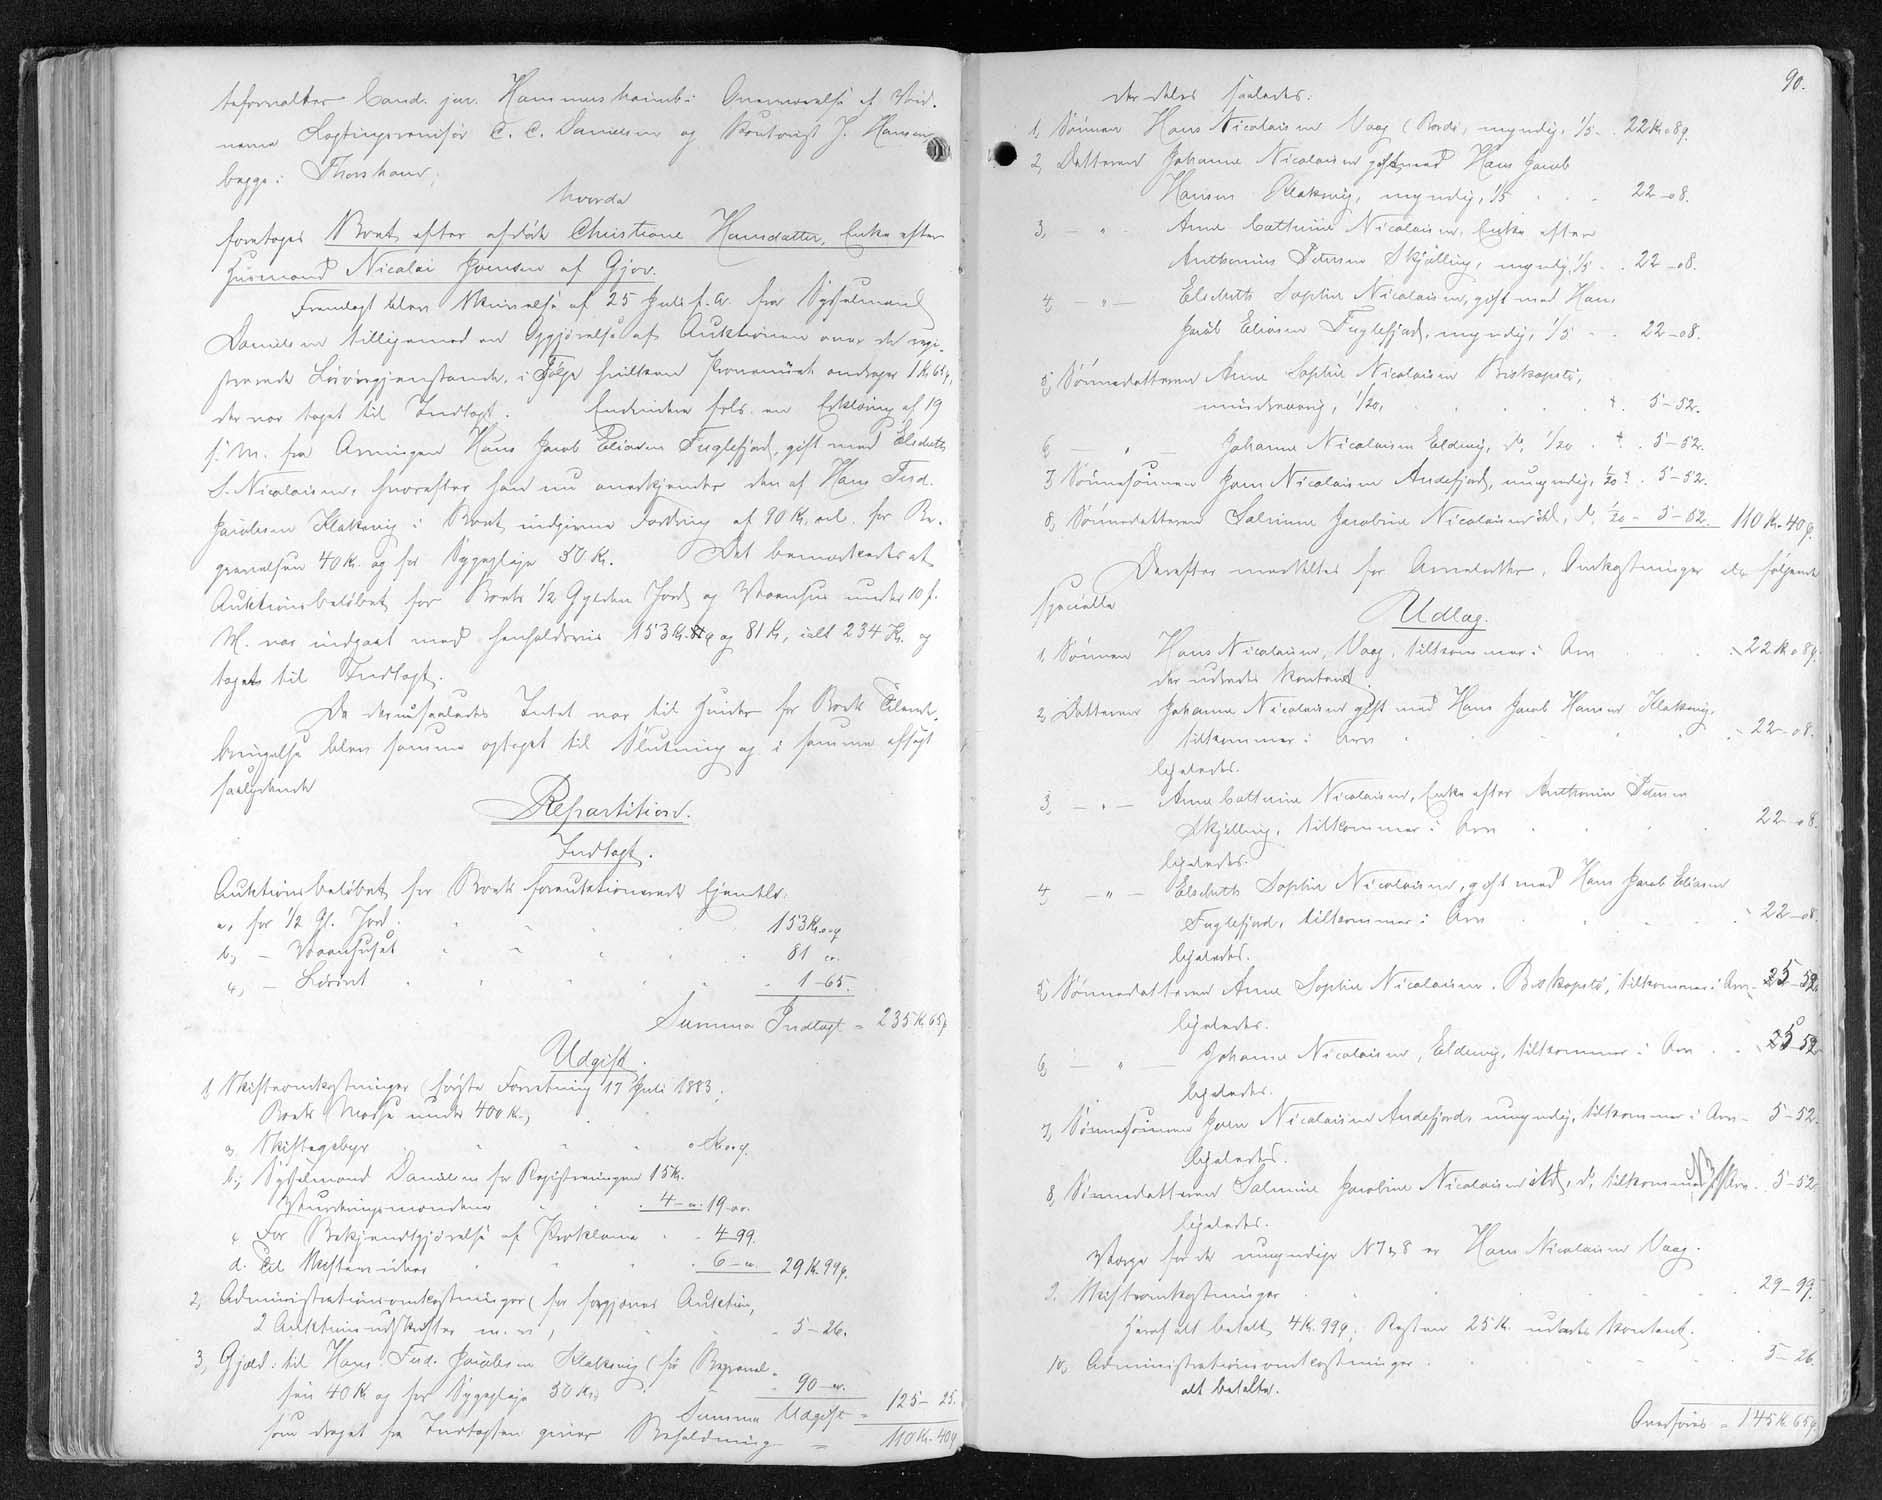 teforvalter Cand. jur. Hammershaimb i Overværelse af Vid-
nerne Lagtingsrevisor C. C. Danielsen og Kontorist J. Hansen
begge i Thorshavn,
hvorda
foretoges Boet efter afdøde Christiane Hansdatter, Enke efter
Huusmand Nicolai Joensen af Gjov.
Fremlagt blev Skrivelse af 25 Juli f. A. fra Sysselmand
Danielsen tilligemed en Opgjørelse af Auktionen over de regi-
strerede Løsøregjenstande, i Følge hvilken Provenüet andrager 1 Kr 65 ø,
der var taget til Indtægt. Endvidere frls. en Erklæring af 19
f. M. fra Arvingen Hans Jacob Eliasen Fuglefjord, gift med Elsebeth
S. Nicolaisen, hvorefter han nu anerkjender den af Hans Fred.
Jacobsen Klaksvig i Boet indgivne Fordring af 90 Kr. nl. for Be-
gravelsen 40 Kr. og for Sygepleje 50 Kr. Det bemærkedes at
Auktionsbeløbet for Boets 1/2 Gylden Jord og Vaanhus under 10 f.
M. var indgaaet med henholdsvis 153 Kr. og 81 Kr, ialt 234 Kr. og
taget til Indtægt.
Da der nu saaledes Intet var til Hinder for Boets Tilende-
bringelse blev samme optaget til Slutning og i samme afsagt
saalydende
Repartition.
Indtægt.
Auktionsbeløbet for Boets forauktionerede Ejendele:
a, for 1/2 Gl. Jord 153 Kr. " ø
b, - Vaanhuset 81 "
c, - Løsøret 1 - 65.
Summa Indtægt = 235 K. 65 ø.
Udgift.
1, Skifteomkostninger (første Forretning 17 Juli 1883;
Boets Masse under 400 Kr.,
a, Skiftegebyr " Kr. " ø.
b, Sysselmand Danielsen for Registreringen 15 Kr.
Vurderingsmændene 4 - ". 19 - ".
c For Bekjendtgjørelse af Proklama 4 99.
d. Til Skifteskriver 6 - ". 29 K. 99 ø.
2, Administrationsomkostninger (for forgjæves Auktion,
2 Auktionsudskrifter m. v., 5 - 26.
3, Gjæld: til Hans Fred. Jacobsen Klaksvig (for Begravel-
sen 40 Kr og for Sygepleje 50 Kr.) 90 - ".
Summa Udgift = 125 - 25.
som draget fra Indtægten giver Beholdning = 110 Kr. 40 ø
90.
der deles saaledes:
1, Sønnen Hans Nicolaisen Vaag (Bordø), myndig, 1/5 22 Kr 08 ø.
2, Datteren Johanne Nicolaisen gift med Hans Jacob
Hansen Klaksvig, myndig, 1/5 22 - 08.
3, - " - Anne Cathrine Nicolaisen, Enke efter
Anthonius Petersen Skjelling, myndig 1/5 22 - 08.
4, - " - Elsebeth Sophie Nicolaisen, gift med Hans
Jacob Eliasen Fuglefjord, myndig, 1/5 22 - 08.
5, Sønnedatteren Anne Sophie Nicolaisen Biskopstø,
mindreaarig, 1/20, 5 - 52.
6 - " - Johanne Nicolaisen Eldevig, do, 1/20 5 - 52.
7, Sønnesønnen Joen Nicolaisen Andefjord, umyndig, 1/20 5 - 52.
8, Sønnedatteren Salmine Jacobine Nicolaisen ibd., do, 1/20 - 5 - 52. 110 Kr. 40 ø.
Derefter meddeltes for Arvelodder, Omkostninger etc. følgende
specielle
Udlæg.
1, Sønnen Hans Nicolaisen, Vaag, tilkommer i Arv 22 K 08 ø.
der udredes kontant
2, Datteren Johanne Nicolaisen gift med Hans Jacob Hansen Klaksvig,
tilkommer i Arv 22 - 08.
ligeledes.
3, - " - Anne Cathrine Nicolaisen, Enke efter Anthonius Petersen
Skjelling, tilkommer i Arv 22 - 08.
ligeledes.
4, - " - Elsebeth Sophie Nicolaisen, gift med Hans Jacob Eliasen
Fuglefjord, tilkommer i Arv 22 - 08.
ligeledes.
5, Sønnedatteren Anne Sophie Nicolaisen, Biskopstø, tilkommer i Arv 5 - 52
ligeledes.
6, - " - Johanne Nicolaisen, Eldevig, tilkommer i Arv 5 52
ligeledes.
7, Sønnesønnen Joen Nicolaisen Andefjord, umyndig, tilkommer i Arv - 5 - 52.
ligeledes.
8, Sønnedatteren Salmine Jacobine Nicolaisen ibd, do, tilkommer i Arv 5 - 52
ligeledes.
Værge for de umyndige No 7 & 8 er Hans Nicolaisen Vaag.
9. Skifteomkostninger 29 - 99.
Heraf alt betalt 4 K. 99 ø, Resten 25 K. udredes kontant.
10, Administrationsomkostninger 5 - 26.
alt betalte.
Overføres = 145 K. 65 ø.